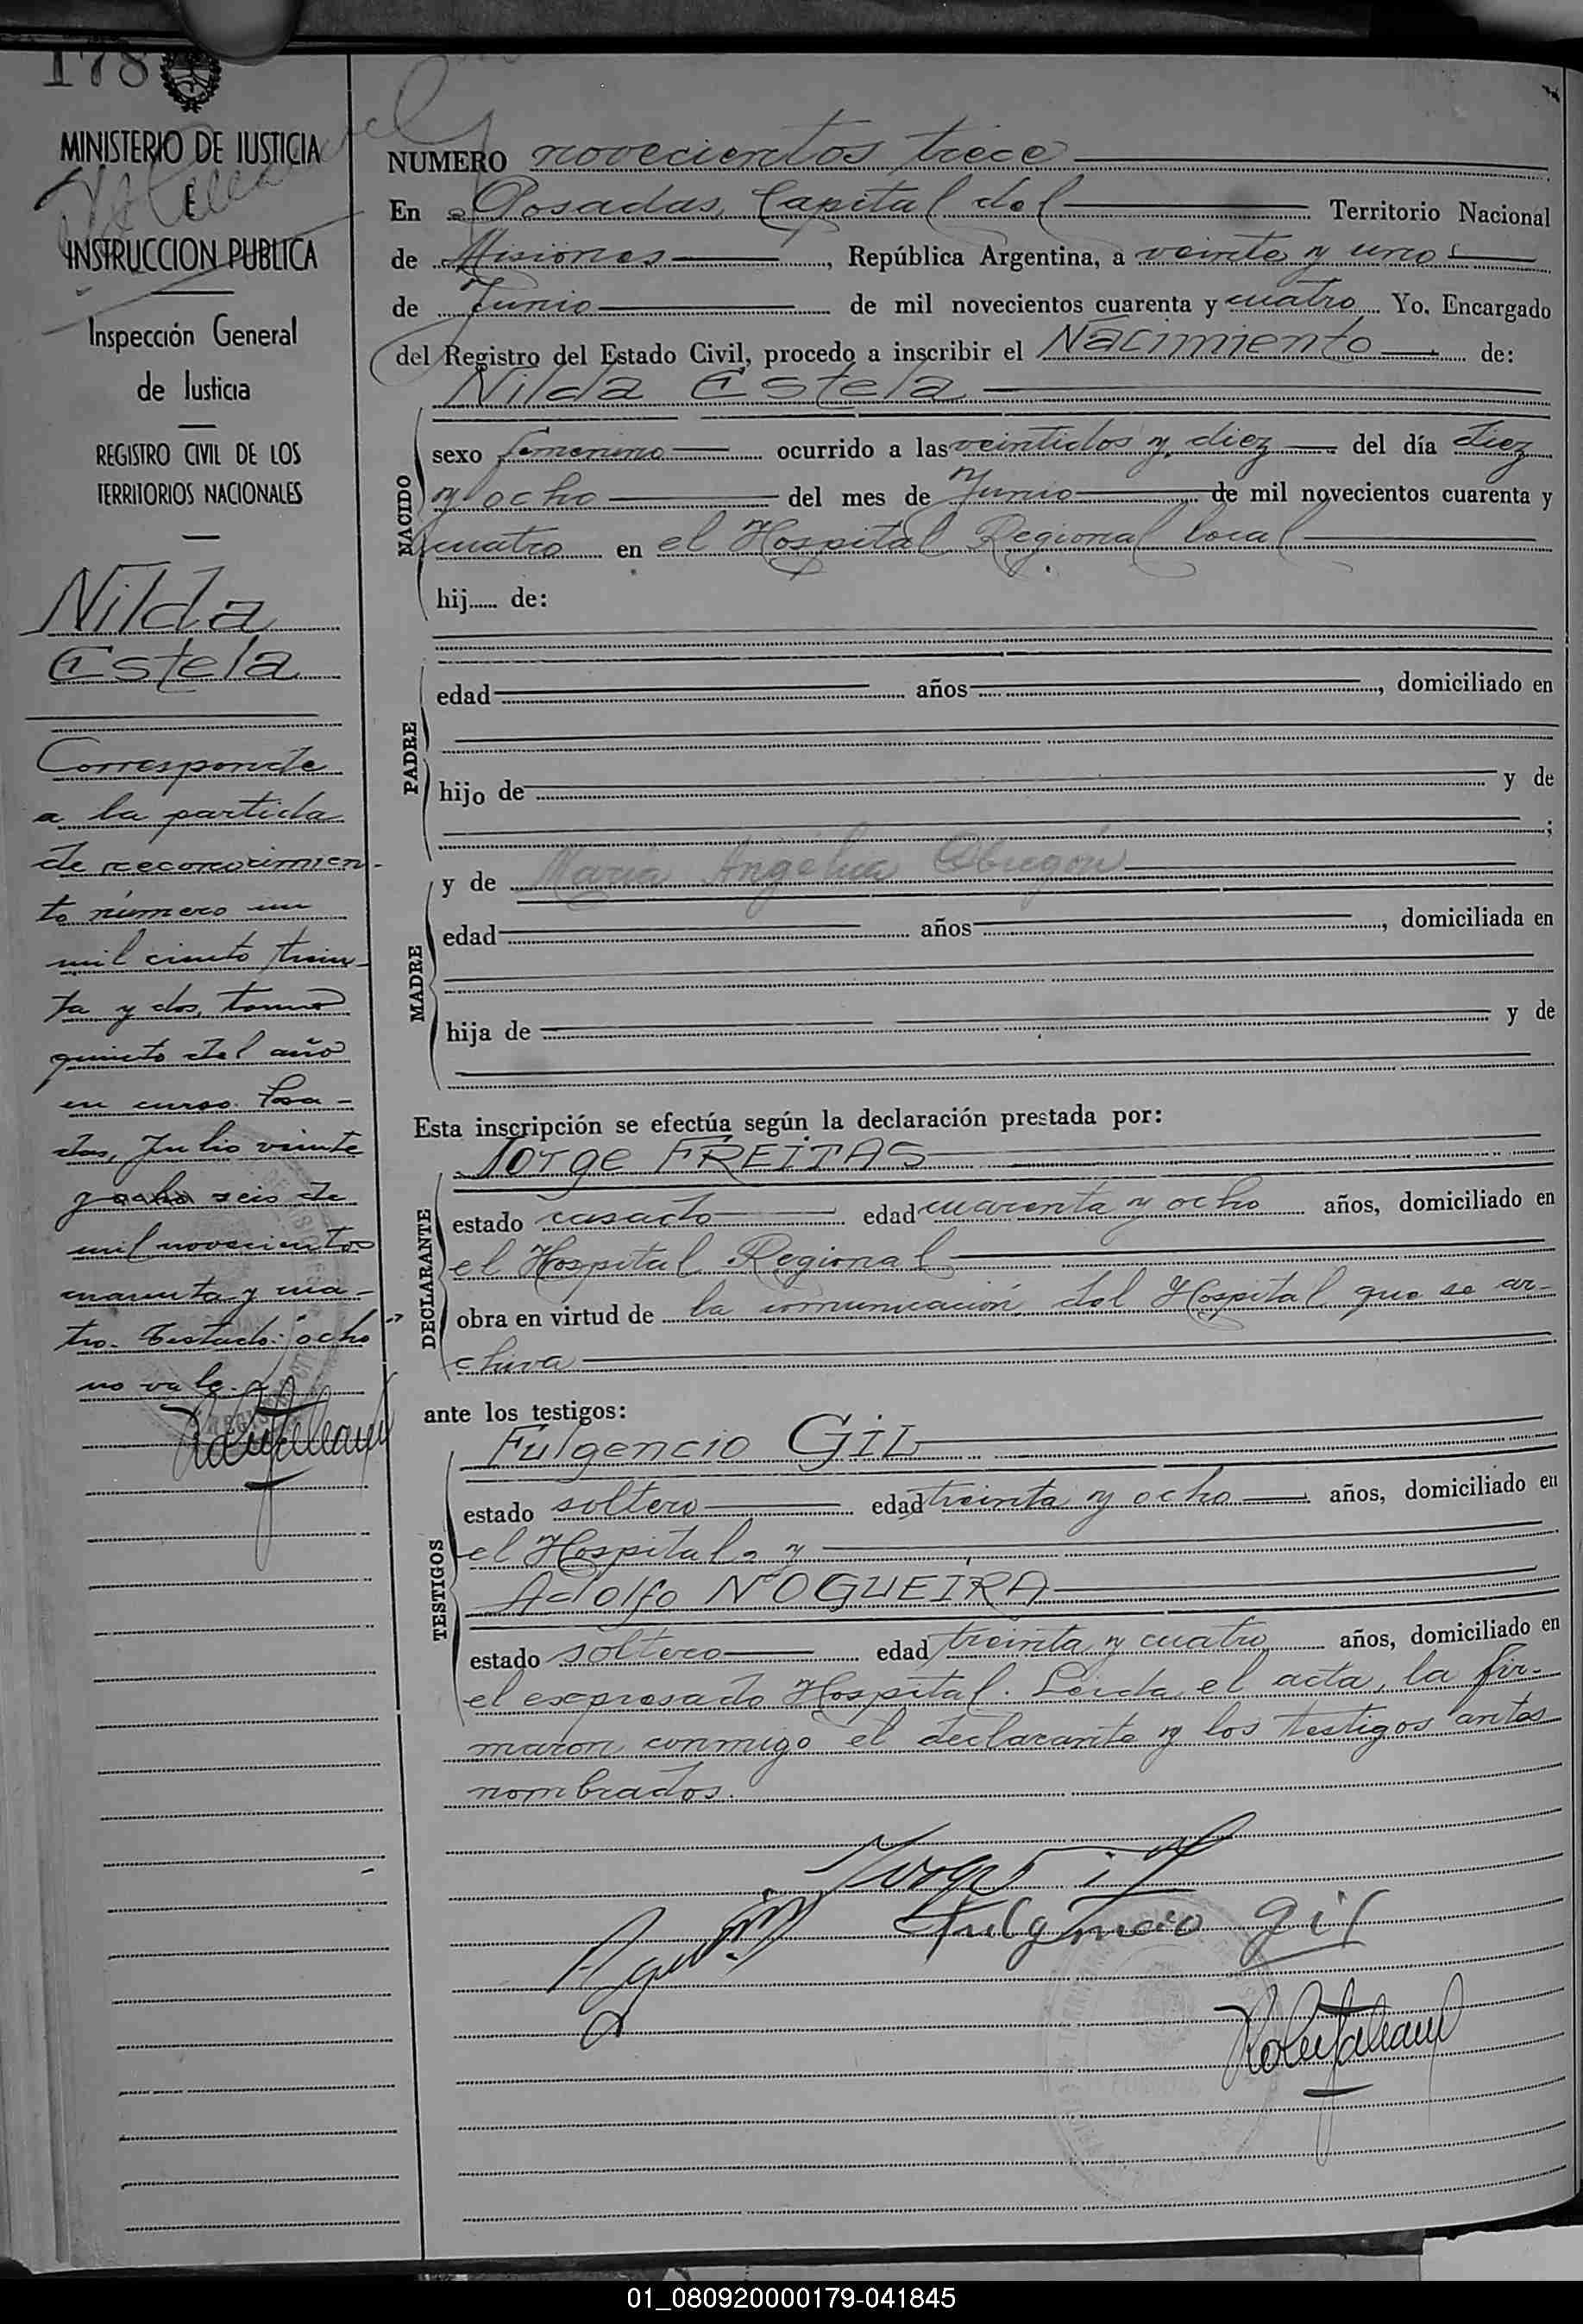 178
MINISTERIO DE JUSTICIA
E
INSTRUCCION PUBLICA
Inspección General
de Justicia
REGISTRO CIVIL DE LOS
TERRITORIOS NACIONALES
Nilda
Estela
Corresponde
a la partida
de reconocimien-
to número un
mil ciento trein-
ta y dos, tomo
quinto del año
en curso. Posa-
das, Julio veinte
y ocho seis de
mil novecientos
cuarenta y cua-
tro. Testado: "ocho"
no vale.
NUMERO novecientos trece
En Posadas, Capital del Territorio Nacional
de Misiones, República Argentina, a veinte y uno
de Junio de mil novecientos cuarenta y cuatro Yo, Encargado
del Registro del Estado Civil, procedo a inscribir el Nacimiento de:
Nilda Estela
NACIDO
sexo femenino ocurrido a las veintidos y diez del día diez
y ocho del mes de Junio de mil novecientos cuarenta y
cuatro en el Hospital Regional local
hij...... de:
PADRE
edad años, domiciliado en
hijo de y de
;
y de María Angélica Obregón
MADRE
edad años, domiciliada en
hija de y de
Esta inscripción se efectúa según la declaración prestada por:
Jorge FREITAS
DECLARANTE
estado casado edad cuarenta y ocho años, domiciliado en
el Hospital Regional
obra en virtud de la comunicación del Hospital que se ar-
chiva
ante los testigos:
Fulgencio GIL
TESTIGOS
estado soltero edad treinta y ocho años, domiciliado en
el Hospital y
Adolfo NOGUEIRA
estado soltero edad treinta y cuatro años, domiciliado en
el expresado Hospital. Leida el acta, la fir-
maron conmigo el declarante y los testigos antes
nombrados.
Fulgencio Gil
01_080920000179-041845